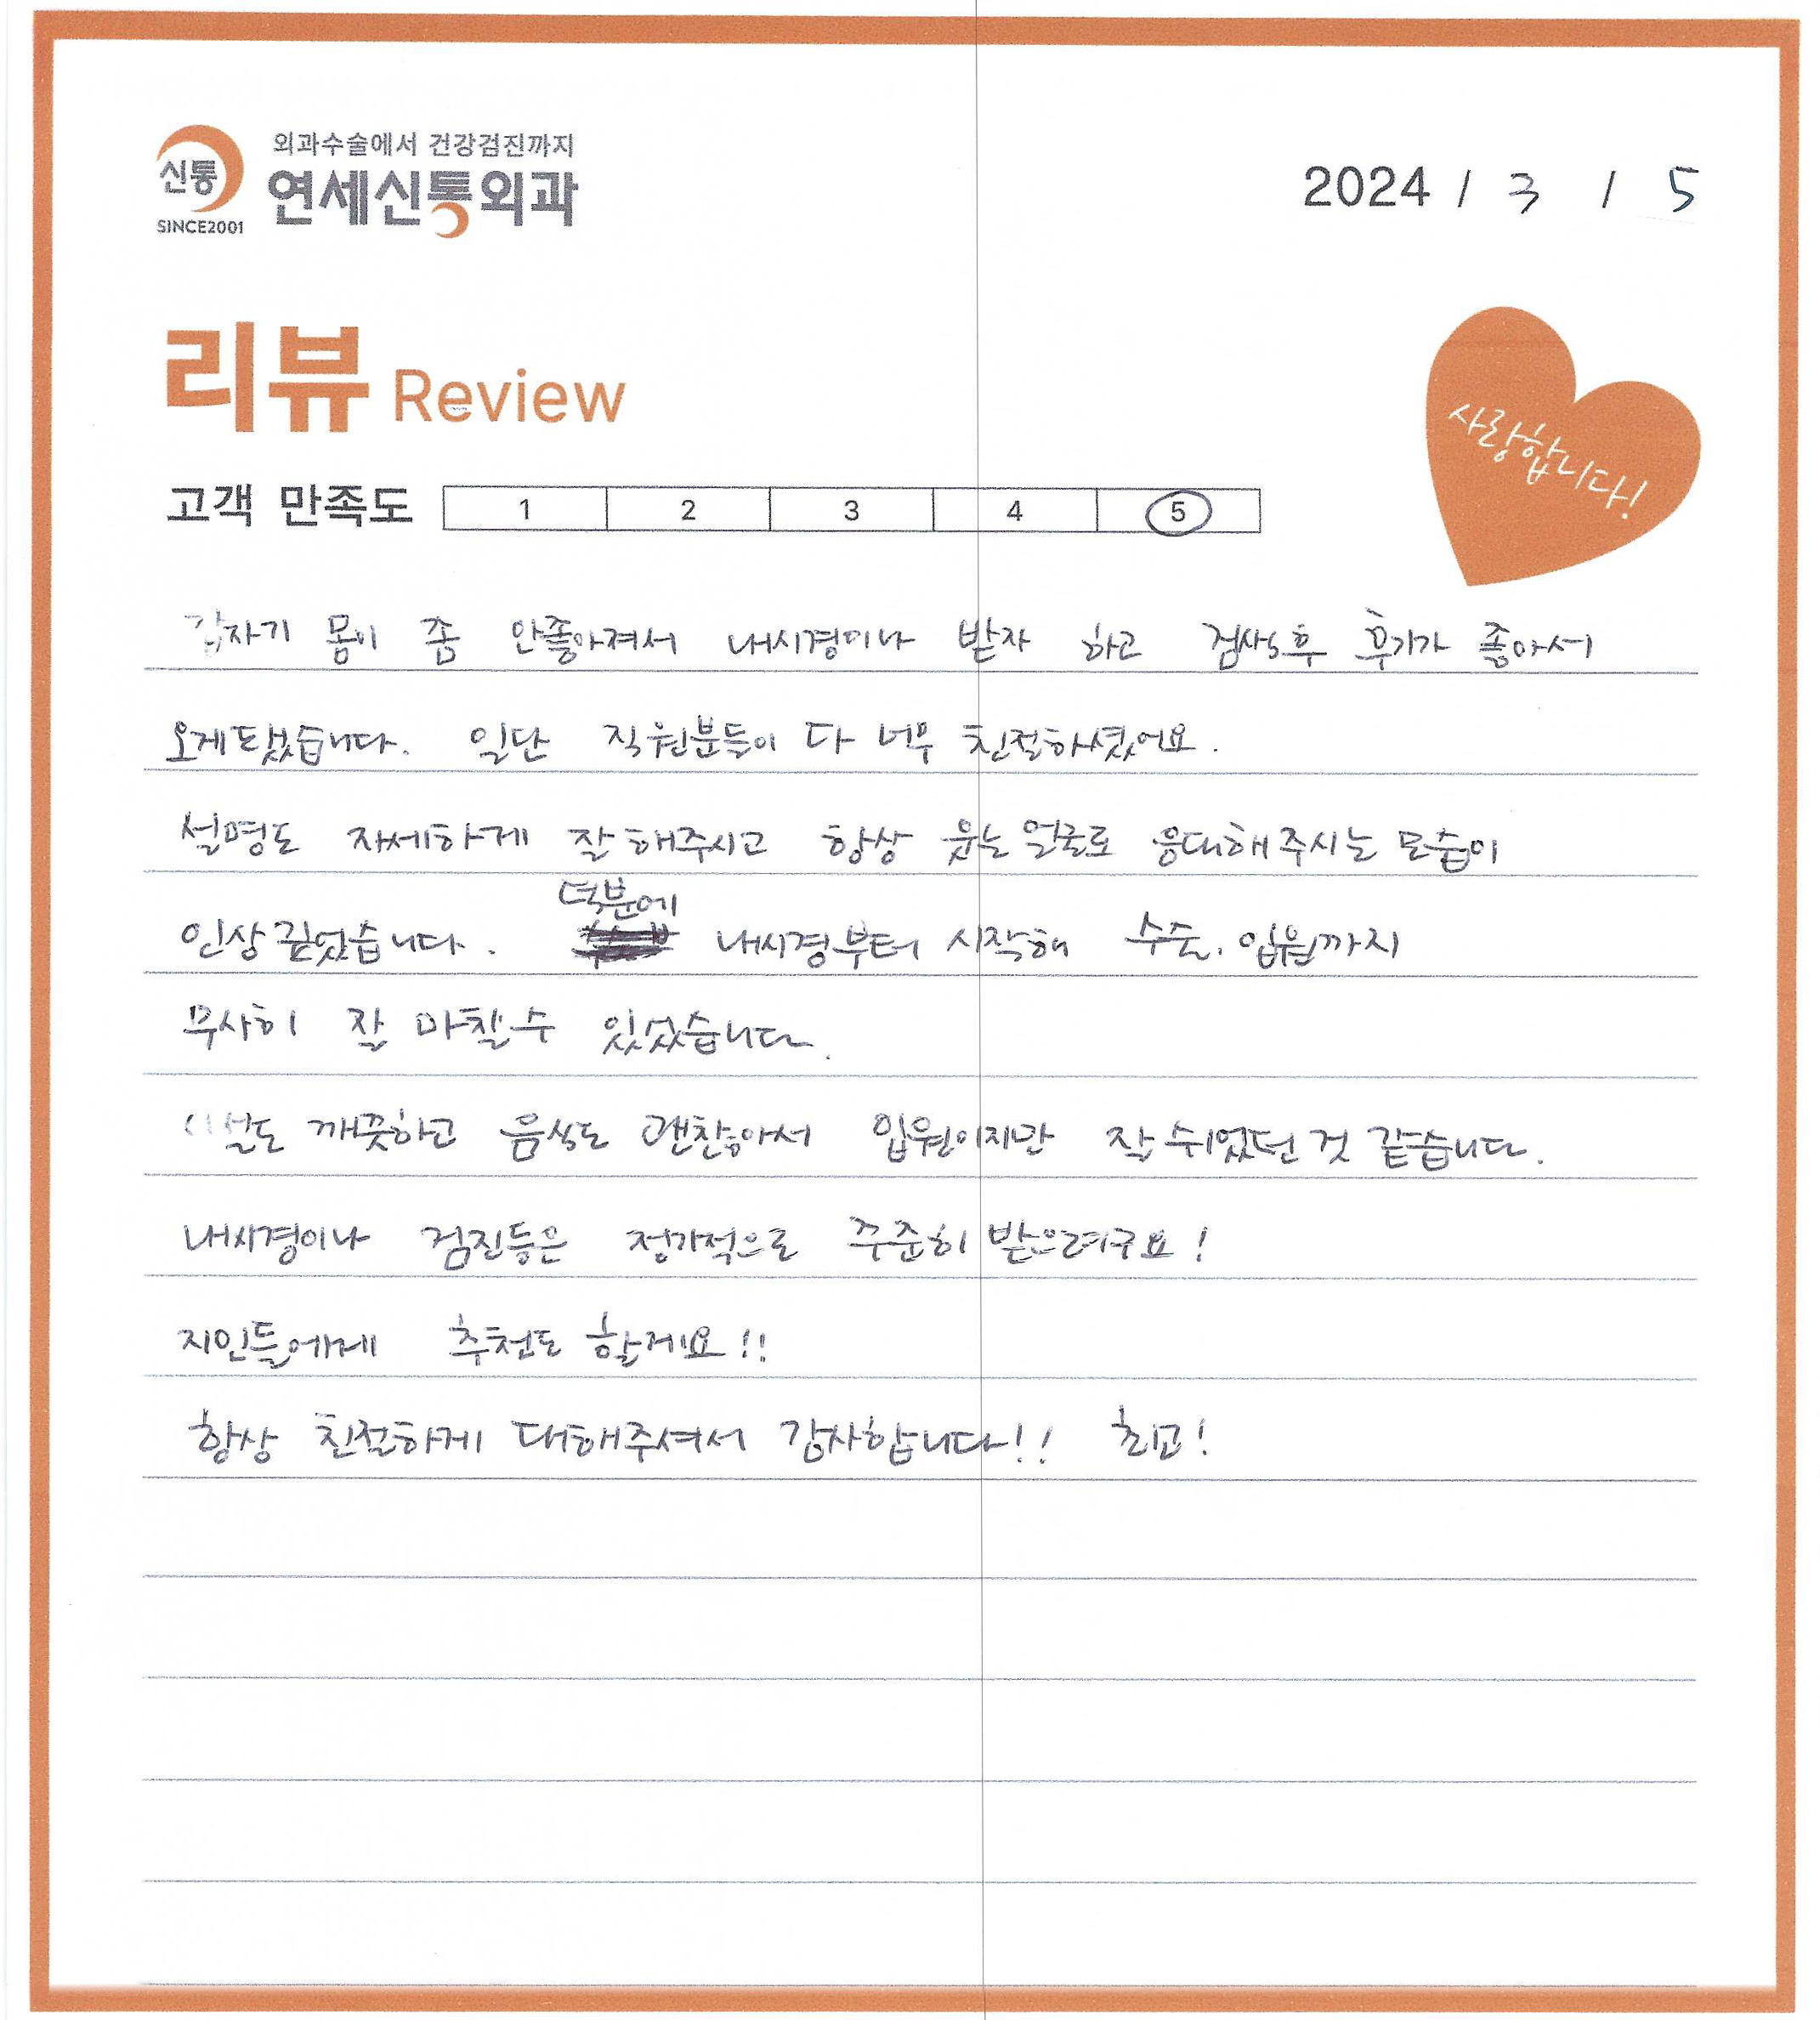 신통
SINCE2001
외과수술에서 건강검진까지
연세신통외과
2024 / 3 / 5
리뷰 Review
사랑합니다!
고객 만족도 1 2 3 4 5
갑자기 몸이 좀 안좋아져서 내시경이나 받자 하고 검색후 후기가 좋아서
오게됐었습니다. 일단 직원분들이 다 너무 친절하셨어요.
설명도 자세하게 잘 해주시고 항상 웃는 얼굴로 응대해주시는 모습이
인상깊었습니다. 덕분에 내시경부터 시작해 수술, 입원까지
무사히 잘 마칠수 있었습니다.
시설도 깨끗하고 음식도 괜찮아서 입원이지만 잘 쉬었던 것 같습니다.
내시경이나 검진등은 정기적으로 꾸준히 받으려구요!
지인들에게 추천도 할게요!!
항상 친절하게 대해주셔서 감사합니다!! 최고!